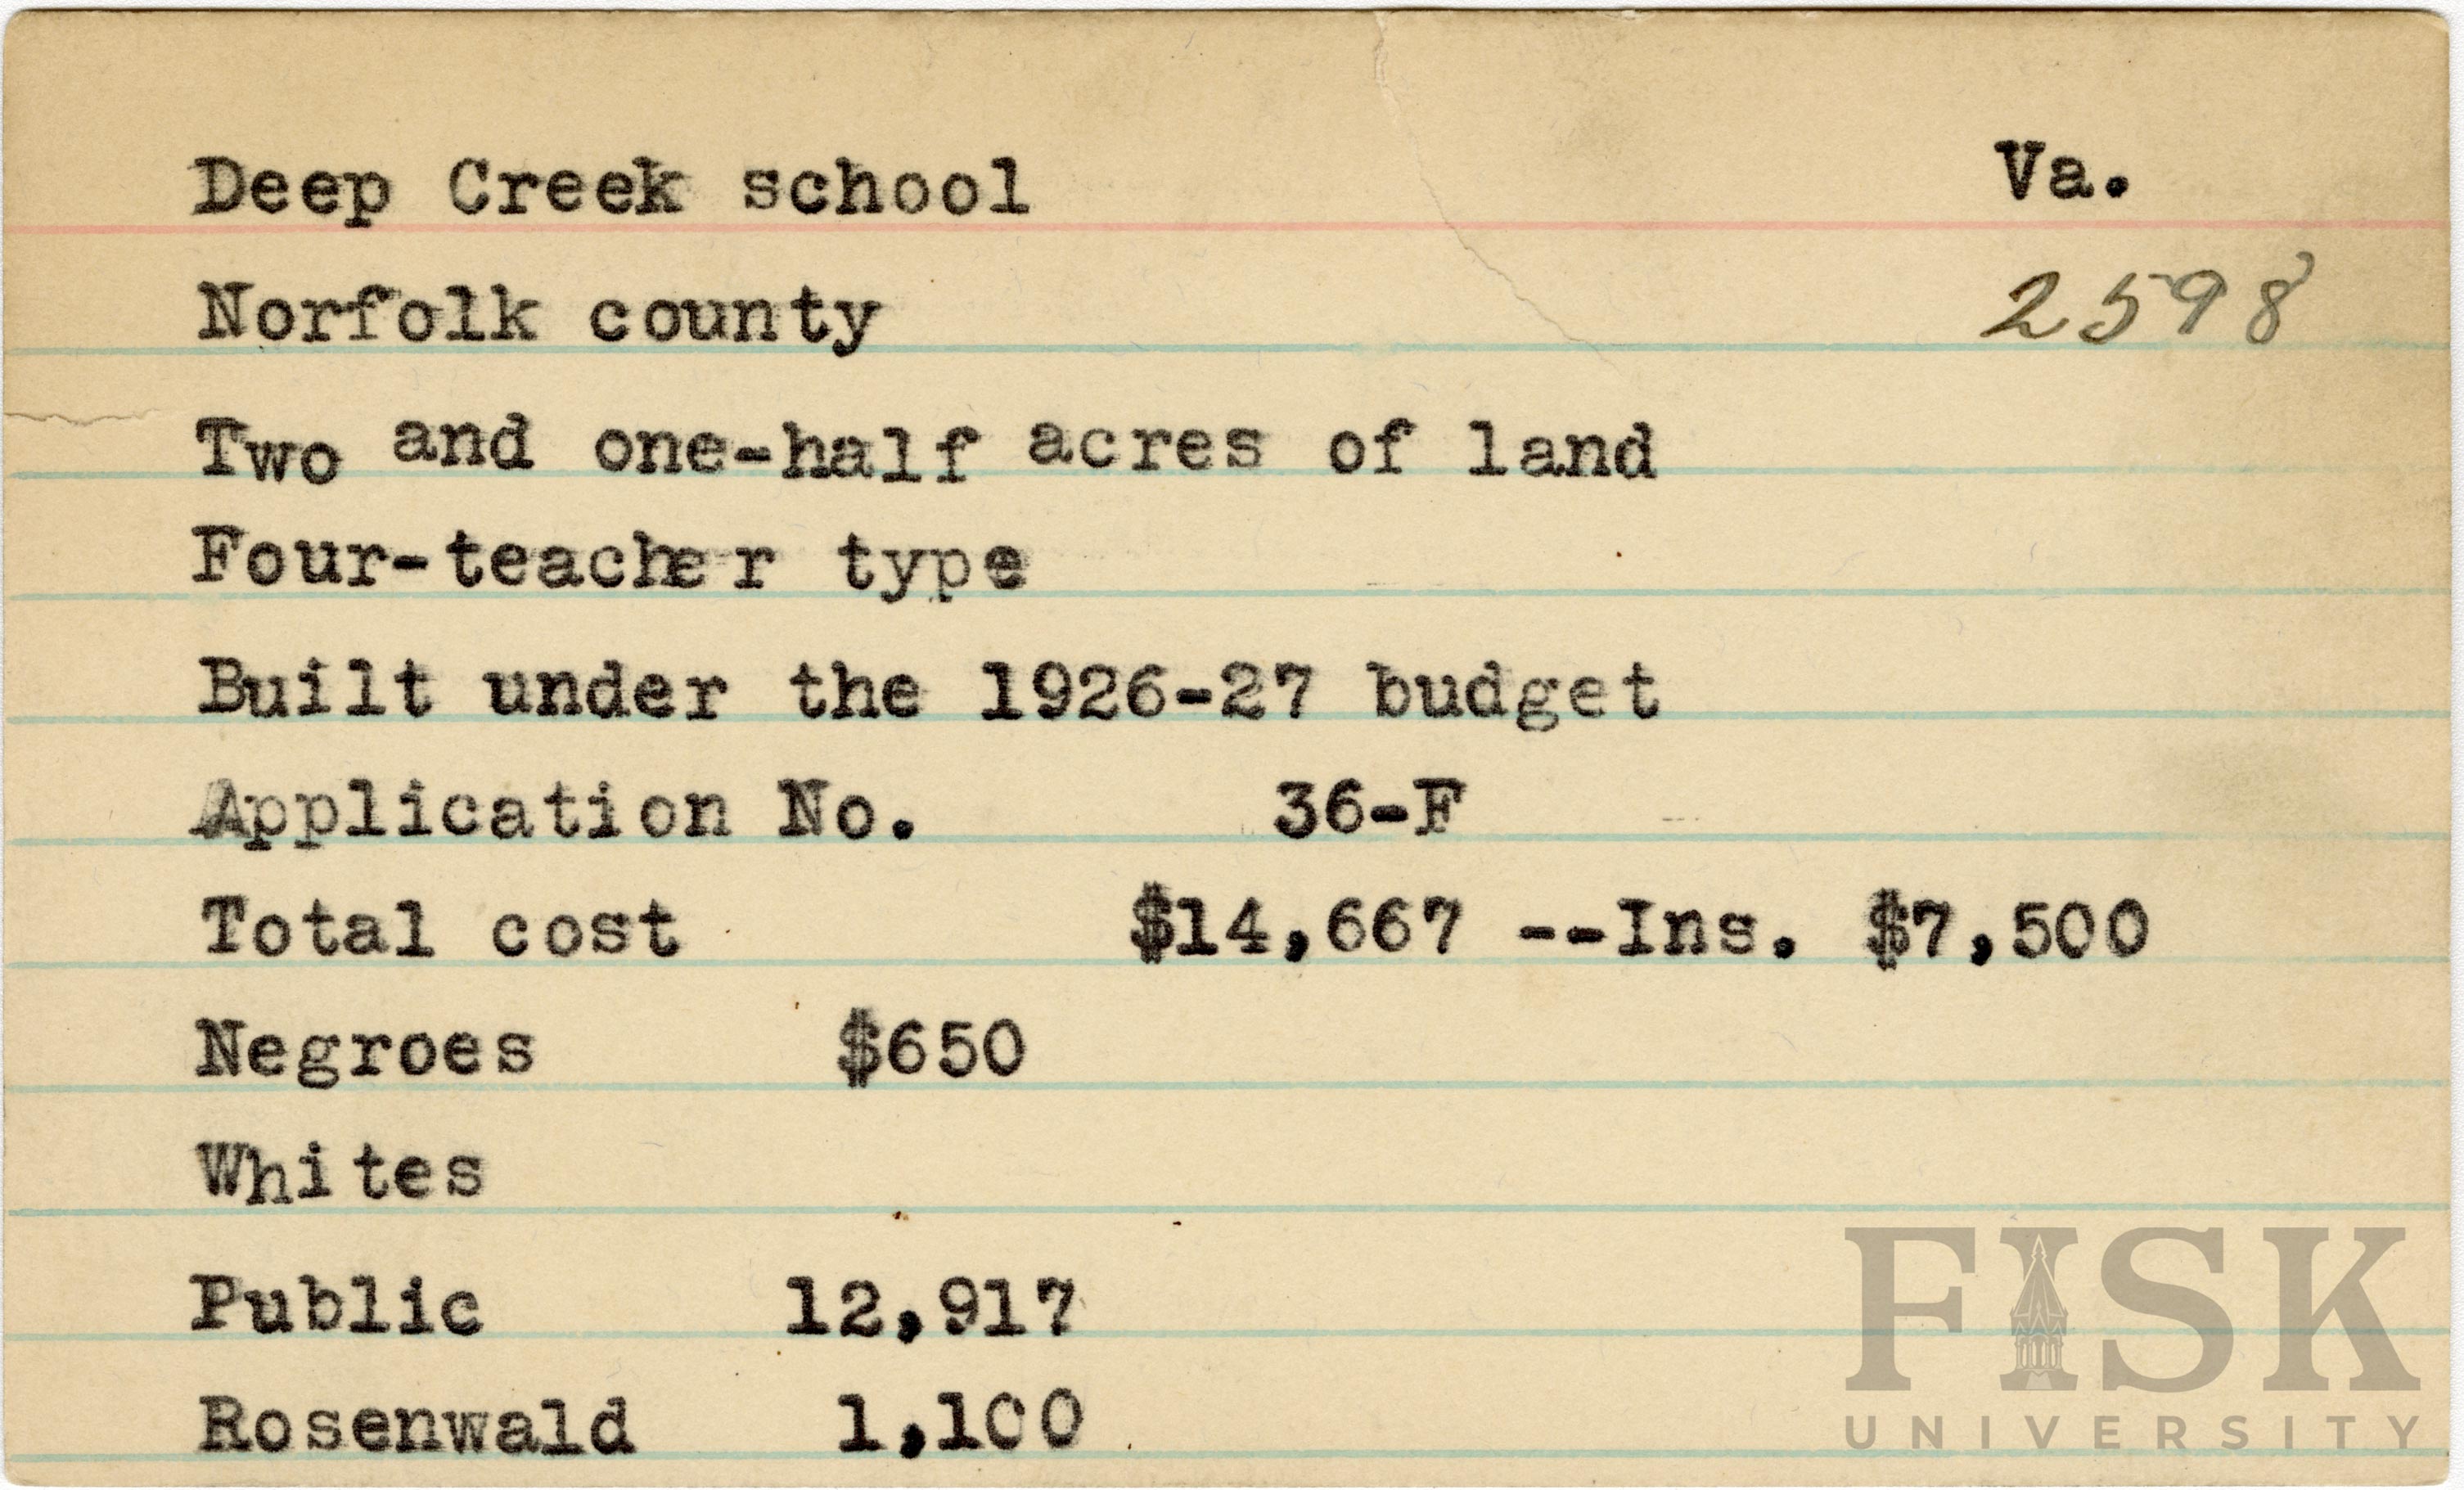 Deep Creek school Va.
Norfolk county 2598
Two and one-half acres of land
Four-teacher type
Built under the 1926-27 budget
Application No. 36-F
Total cost $14,667 --Ins. $7,500
Negroes $650
Whites
Public 12,917
Rosenwald 1,100
FISK
UNIVERSITY